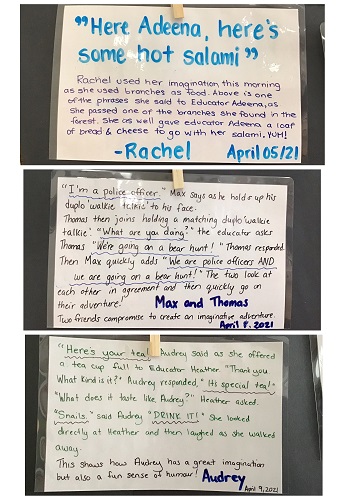 "Here Adeena, here's
some hot salami"
Rachel used her imagination this morning
as she used branches as food. Above is one
of the phrases she said to Educator Adeena, as
she passed one of the branches she found in the
forest. She as well gave educator Adeena a loaf
of bread & cheese to go with her salami. YUM!
-Rachel April 05/21
"I'm a police officer." Max says as he holds up his
duplo 'walkie talkie' to his face.
Thomas then joins holding a matching duplo 'walkie
talkie'. "What are you doing?" the educator asks
Thomas "We're going on a bear hunt!" Thomas responded.
Then Max quickly adds "We are police officers AND
we are going on a bear hunt!" The two look at
each other in agreement and then quickly go on
their adventure! Max and Thomas
Two friends compromise to create an imaginative adventure.
April 8, 2021
"Here's your tea!" Audrey said as she offered
a tea cup full to Educator Heather. "Thank you
What kind is it?" Audrey responded, "Its special tea!"
"What does it taste like, Audrey?" Heather asked.
"Snails." said Audrey "DRINK IT!" She looked
directly at Heather and then laughed as she walked
away.
This shows how Audrey has a great imagination
but also a fun sense of humour! Audrey
April 9, 2021